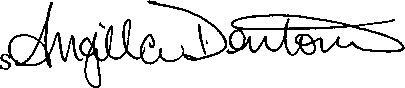 s Angilla Denton